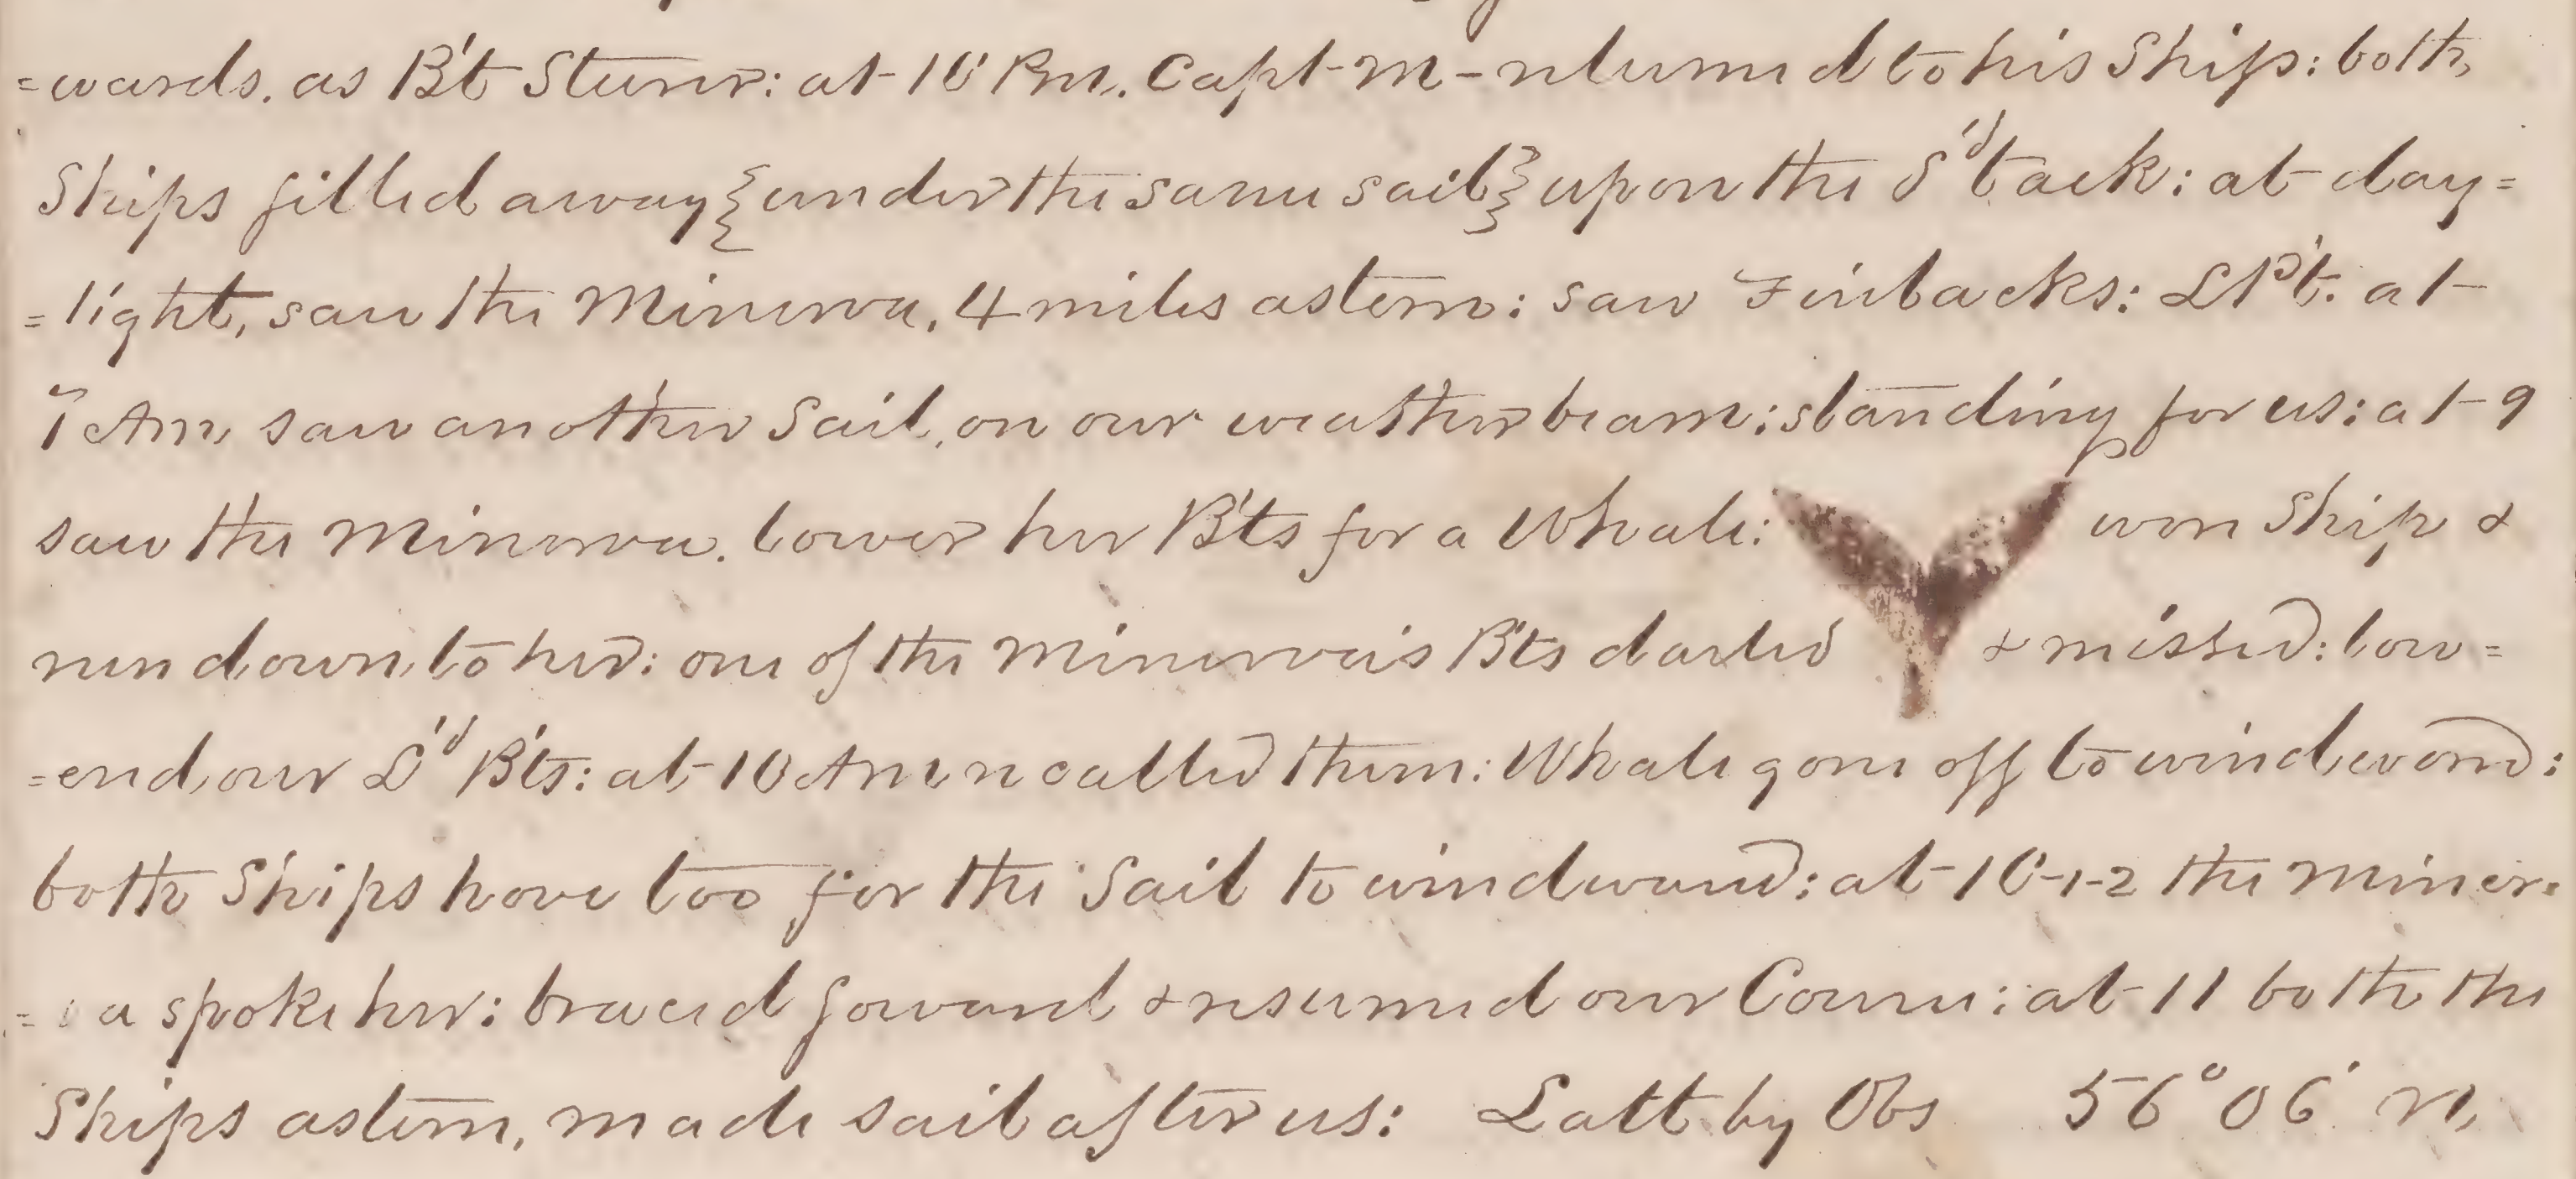 =wards. as B't Sturer: at 10 Pm. Capt- M- returned to his Ship: both
Ships filled away {under the same sail} upon the S'd tack: at day=
=light, saw the Minerva, 4 miles astern: saw Finbacks: L P't. at-
7 Am saw another Sail, on our weather beam: standing for us: at- 9
saw the Minerva. lower her B'ts for a Whale: wore Ship &
run down to her: one of the Minerva's B'ts darted & missed: low=
=erd our L'd B'ts: at- 10 Am recalled them: Whale gone off to windward:
both Ships hove too for the Sail to windward: at- 10-1-2 the Miner=
=va spoke her: braced forward & resumed our Course: at- 11 both the
Ships astern, made sail after us: Latt by Obs 56° 06' N,